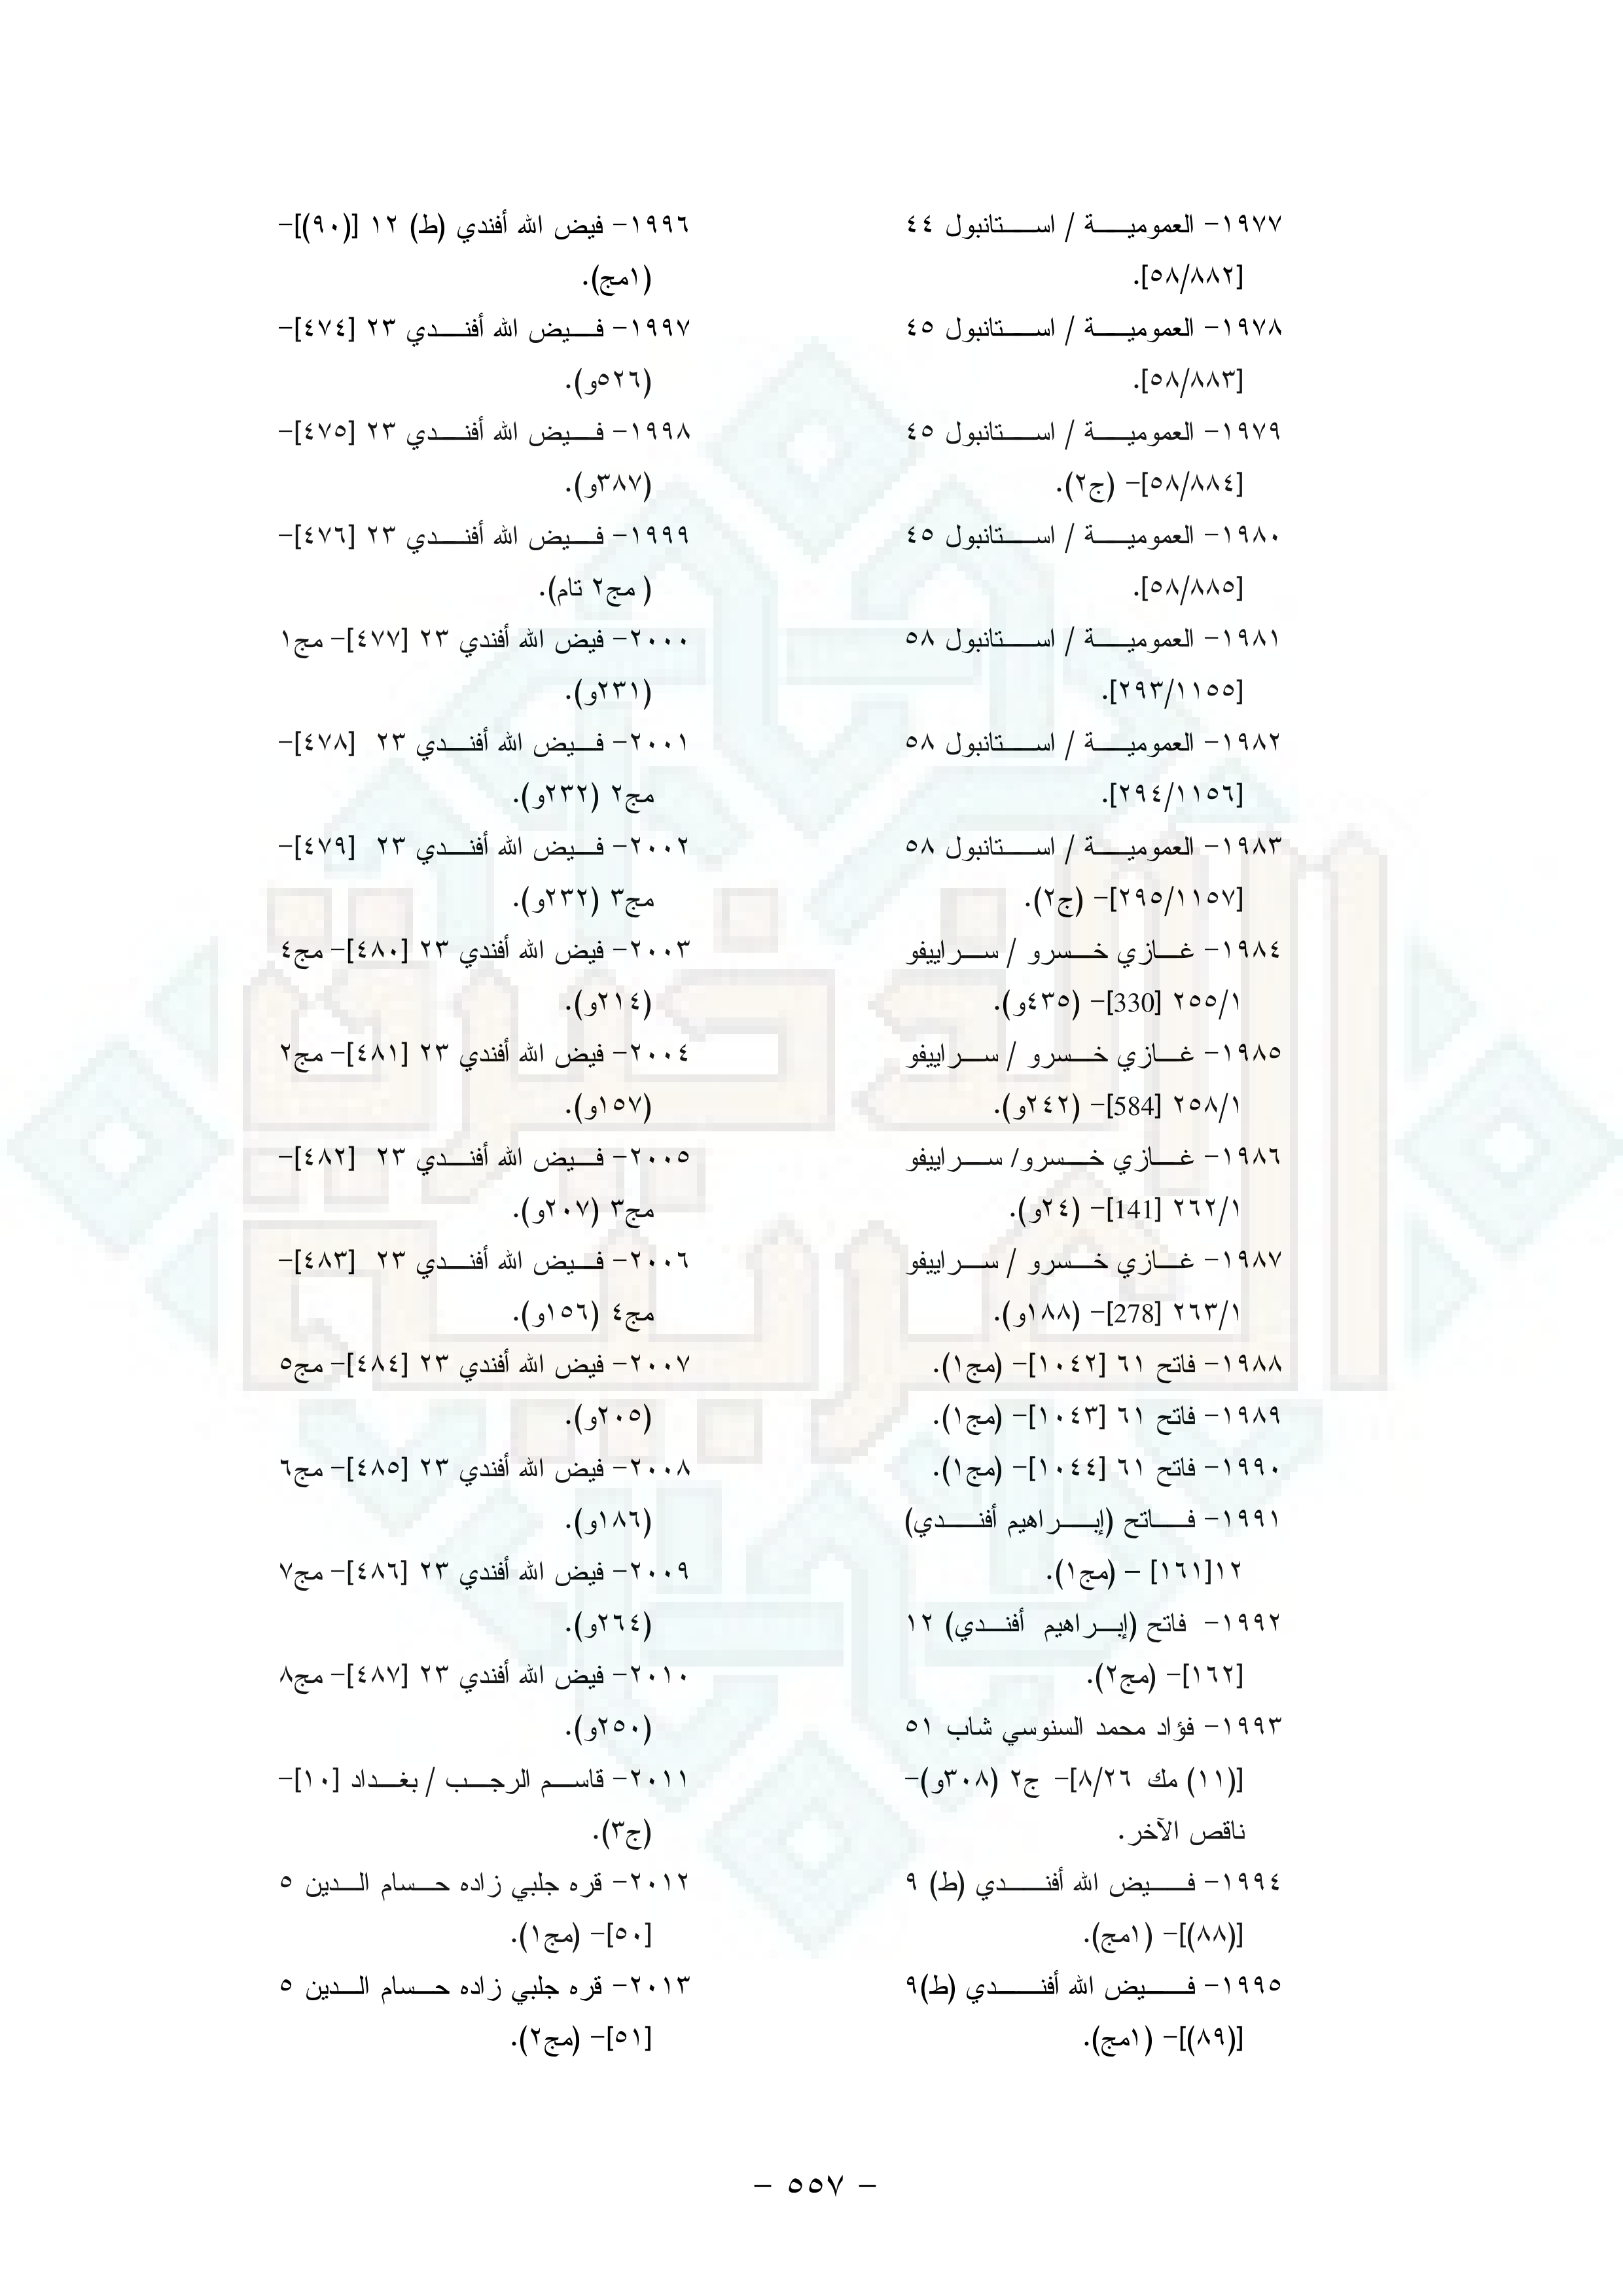 ١٩٧٧- العمومية / استانبول ٤٤
[٥٨/٨٨٢].
١٩٧٨- العمومية / استانبول ٤٥
[٥٨/٨٨٣].
١٩٧٩- العمومية / استانبول ٤٥
[٥٨/٨٨٤]- (ج٢).
١٩٨٠- العمومية / استانبول ٤٥
[٥٨/٨٨٥].
١٩٨١- العمومية / استانبول ٥٨
[٢٩٣/١١٥٥].
١٩٨٢- العمومية / استانبول ٥٨
[٢٩٤/١١٥٦].
١٩٨٣- العمومية / استانبول ٥٨
[٢٩٥/١١٥٧]- (ج٢).
١٩٨٤- غازي خسرو / سراييفو
٢٥٥/١ [330]- (٤٣٥و).
١٩٨٥- غازي خسرو / سراييفو
٢٥٨/١ [584]- (٢٤٢و).
١٩٨٦- غازي خسرو/ سراييفو
٢٦٢/١ [141]- (٢٤و).
١٩٨٧- غازي خسرو / سراييفو
٢٦٣/١ [278]- (١٨٨و).
١٩٨٨- فاتح ٦١ [١٠٤٢]- (مج١).
١٩٨٩- فاتح ٦١ [١٠٤٣]- (مج١).
١٩٩٠- فاتح ٦١ [١٠٤٤]- (مج١).
١٩٩١- فاتح (إبراهيم أفندي)
١٢[١٦١] – (مج١).
١٩٩٢- فاتح (إبراهيم أفندي) ١٢
[١٦٢]- (مج٢).
١٩٩٣- فؤاد محمد السنوسي شاب ٥١
[(١١) مك ٨/٢٦]- ج٢ (٣٠٨و)-
ناقص الآخر.
١٩٩٤- فيض الله أفندي (ط) ٩
[(٨٨)]- (١مج).
١٩٩٥- فيض الله أفندي (ط)٩
[(٨٩)]- (١مج).
١٩٩٦- فيض الله أفندي (ط) ١٢ [(٩٠)]-
(١مج).
١٩٩٧- فيض الله أفندي ٢٣ [٤٧٤]-
(٥٢٦و).
١٩٩٨- فيض الله أفندي ٢٣ [٤٧٥]-
(٣٨٧و).
١٩٩٩- فيض الله أفندي ٢٣ [٤٧٦]-
( مج٢ تام).
٢٠٠٠- فيض الله أفندي ٢٣ [٤٧٧]- مج١
(٢٣١و).
٢٠٠١- فيض الله أفندي ٢٣ [٤٧٨]-
مج٢ (٢٣٢و).
٢٠٠٢- فيض الله أفندي ٢٣ [٤٧٩]-
مج٣ (٢٣٢و).
٢٠٠٣- فيض الله أفندي ٢٣ [٤٨٠]- مج٤
(٢١٤و).
٢٠٠٤- فيض الله أفندي ٢٣ [٤٨١]- مج٢
(١٥٧و).
٢٠٠٥- فيض الله أفندي ٢٣ [٤٨٢]-
مج٣ (٢٠٧و).
٢٠٠٦- فيض الله أفندي ٢٣ [٤٨٣]-
مج٤ (١٥٦و).
٢٠٠٧- فيض الله أفندي ٢٣ [٤٨٤]- مج٥
(٢٠٥و).
٢٠٠٨- فيض الله أفندي ٢٣ [٤٨٥]- مج٦
(١٨٦و).
٢٠٠٩- فيض الله أفندي ٢٣ [٤٨٦]- مج٧
(٢٦٤و).
٢٠١٠- فيض الله أفندي ٢٣ [٤٨٧]- مج٨
(٢٥٠و).
٢٠١١- قاسم الرجب / بغداد [١٠]-
(ج٣).
٢٠١٢- قره جلبي زاده حسام الدين ٥
[٥٠]- (مج١).
٢٠١٣- قره جلبي زاده حسام الدين ٥
[٥١]- (مج٢).
- ٥٥٧ -
الذخيرة
العربية